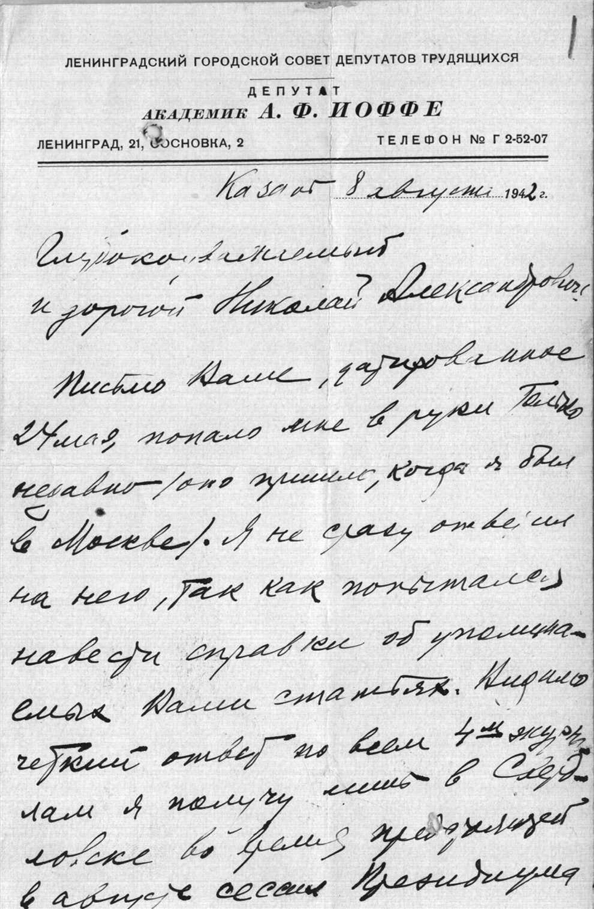 1
ЛЕНИНГРАДСКИЙ ГОРОДСКОЙ СОВЕТ ДЕПУТАТОВ ТРУДЯЩИХСЯ
ДЕПУТАТ
АКАДЕМИК А. Ф. ИОФФЕ
ЛЕНИНГРАД, 21, СОСНОВКА, 2 ТЕЛЕФОН № Г 2-52-07
Казань 8 августа 1942 г.
Глубокоуважаемый
и дорогой Николай Александрович!
Письмо Ваше, датированное
24 мая, попало мне в руки только
недавно (оно пришло, когда я был
в Москве). Я не сразу ответил
на него, так как попытался
навести справки об упомина-
емых Вами статьях. Видимо
четкий ответ по всем 4м журна-
лам я получу лишь в Сверд-
ловске во время предстоящей
в августе сессии Президиума